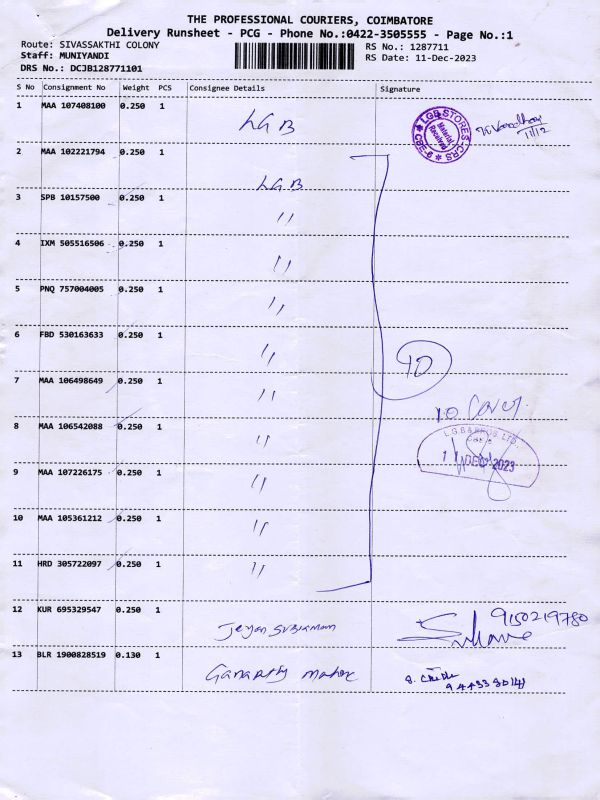 THE PROFESSIONAL COURIERS, COIMBATORE
Delivery Runsheet - PCG - Phone No.:0422-3505555 - Page No.:1
Route: SIVASSAKTHI COLONY RS No.: 1287711
Staff: MUNIYANDI RS Date: 11-Dec-2023
DRS No.: DCJB128771101
S No Consignment No Weight PCS Consignee Details Signature
1 MAA 107408100 0.250 1 LGB LGB STORES-CRS Material Received CBE-6 11/12
2 MAA 102221794 0.250 1 LGB
3 SPB 10157500 0.250 1 "
4 IXM 505516506 0.250 1 "
5 PNQ 757004005 0.250 1 "
6 FBD 530163633 0.250 1 " 10
7 MAA 106498649 0.250 1 "
10 Cover
8 MAA 106542088 0.250 1 " L.G.B & BROS. LTD.
9 MAA 107226175 0.250 1 " 11 DEC 2023
10 MAA 105361212 0.250 1 "
11 HRD 305722097 0.250 1 "
12 KUR 695329547 0.250 1 9150219780
13 BLR 1900828519 0.130 1